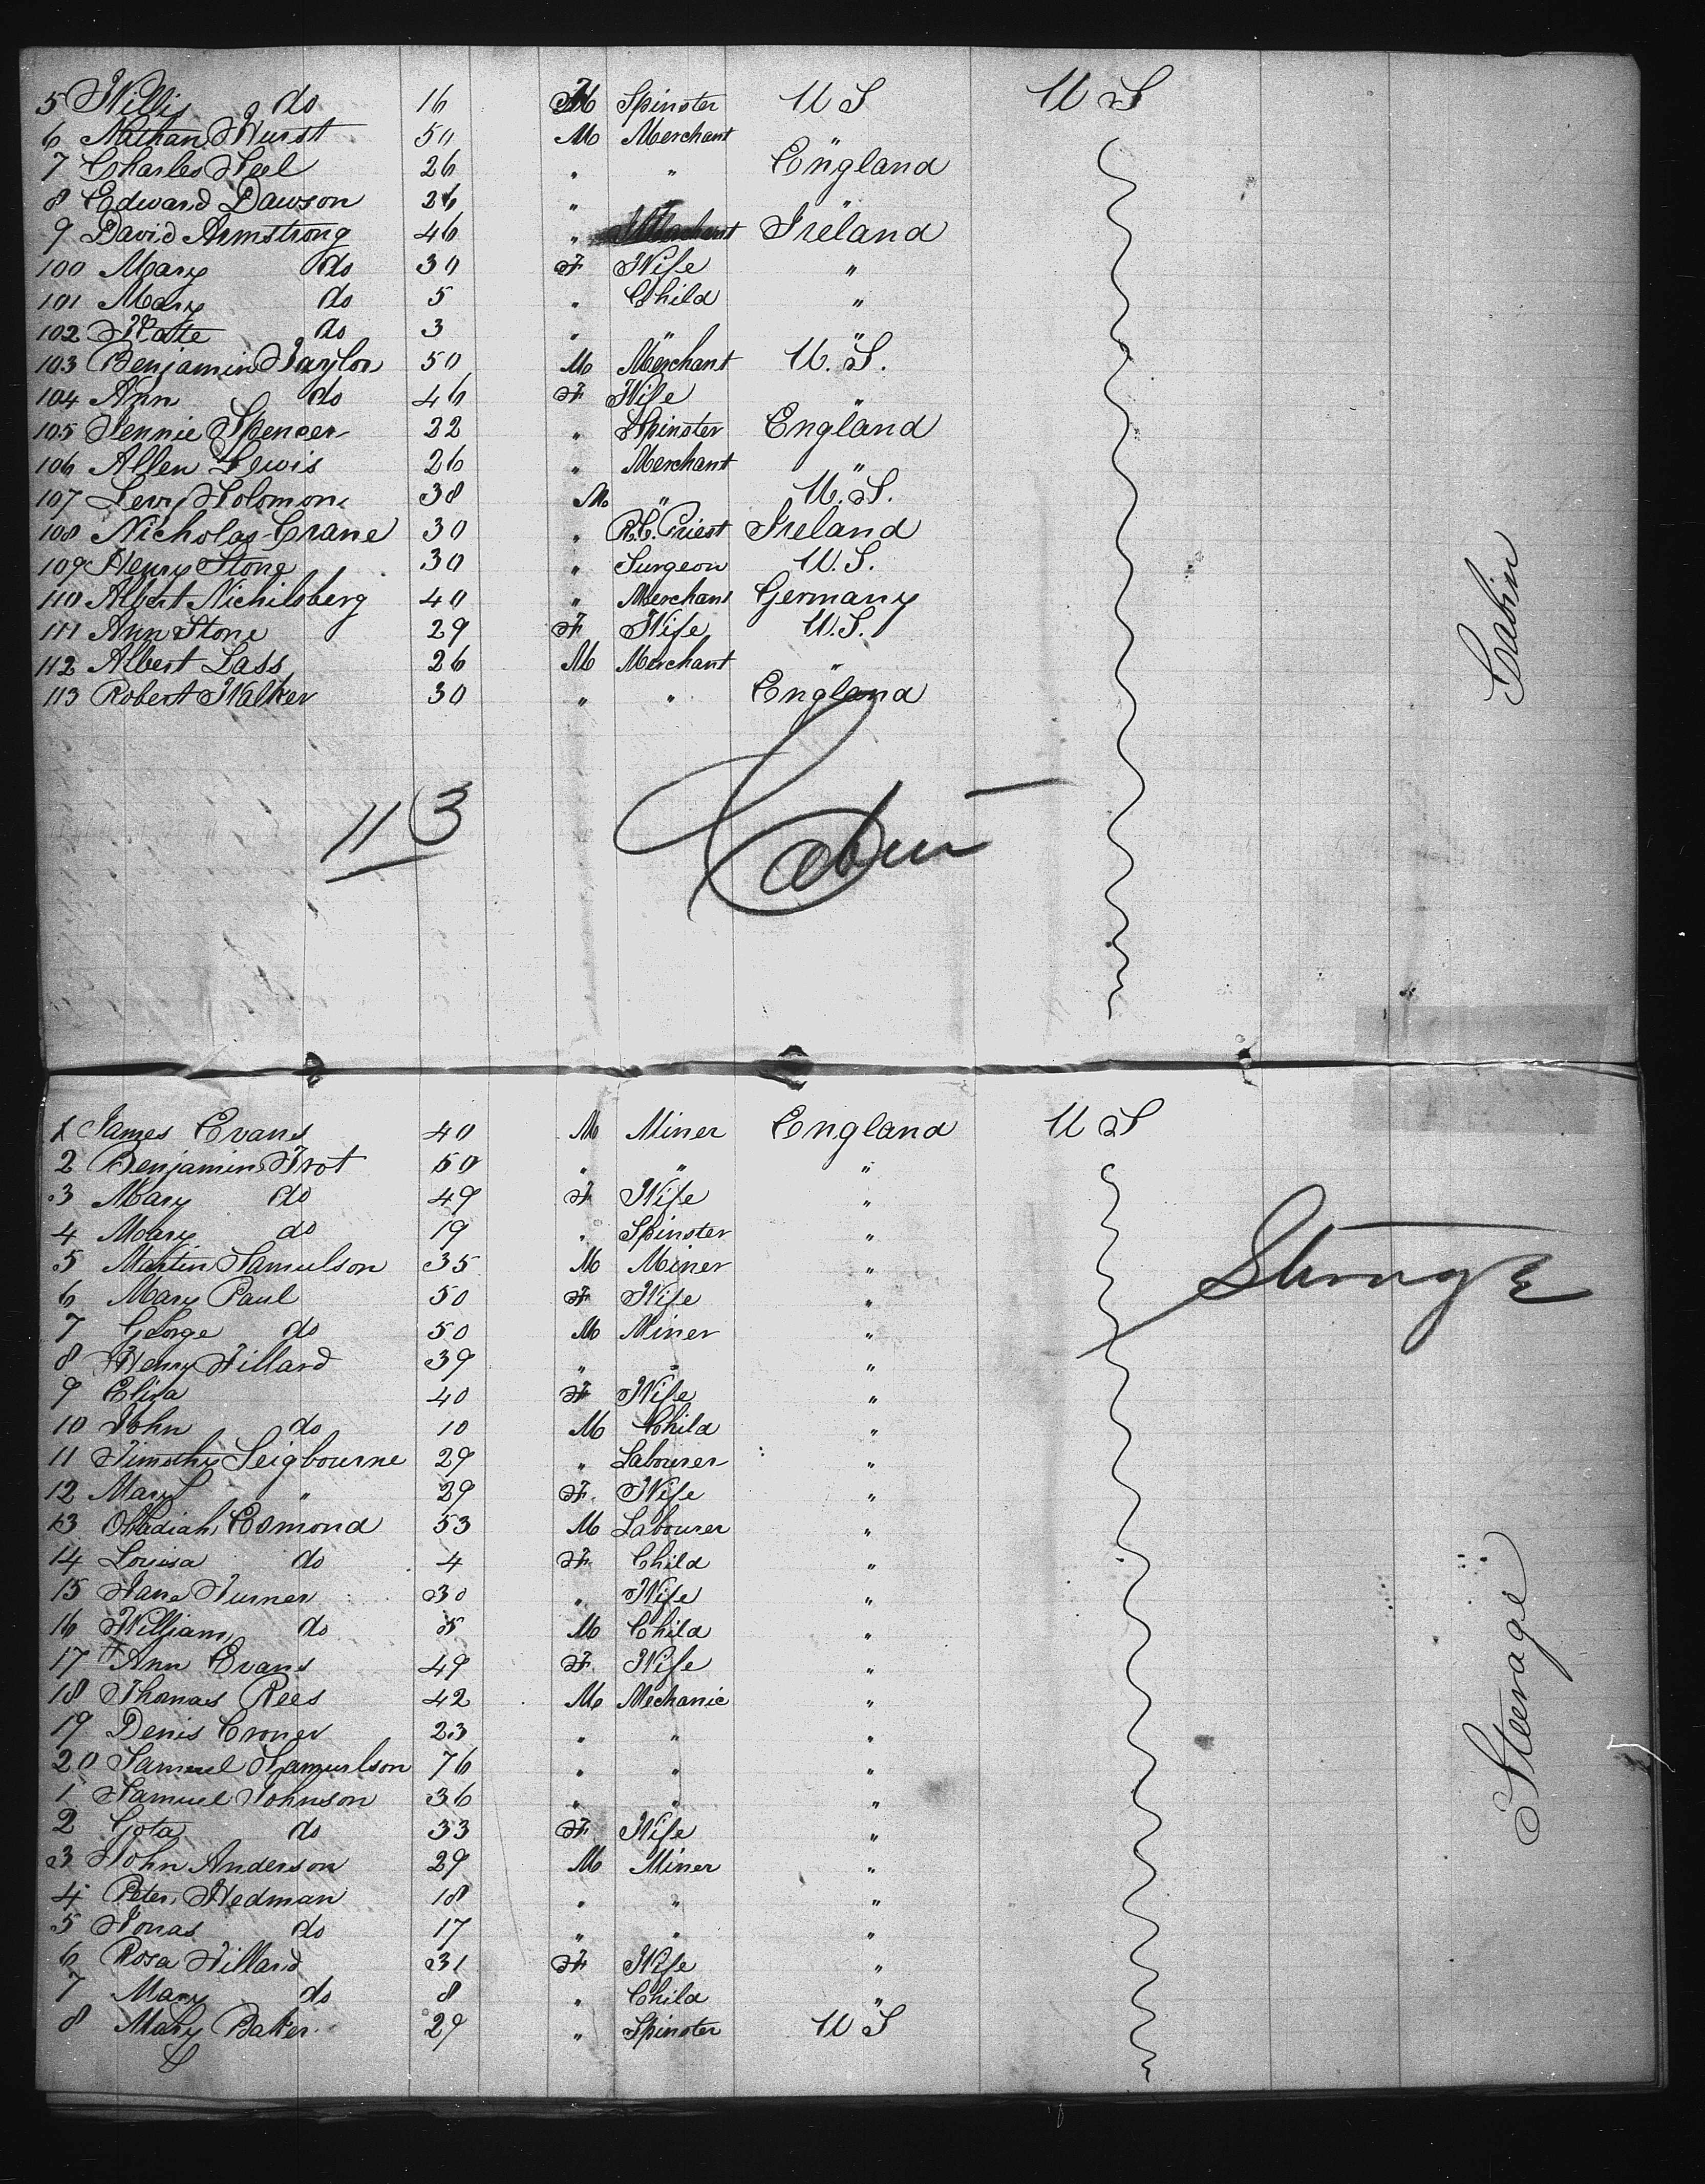 5 Willis do 16 M Spinster U S U S
6 Nathan Hurst 50 M Merchant "
7 Charles Teel 26 " " England
8 Edward Dawson 26 " " "
9 David Armstrong 46 " Merchant Ireland
100 Mary do 30 F Wife "
101 Mary do 5 " Child "
102 Kate do 3 " " "
103 Benjamin Taylor 50 M Merchant U.S.
104 Ann do 46 F Wife "
105 Jennie Spencer 22 " Spinster England
106 Allen Lewis 26 " Merchant "
107 Levy Solomon 38 M " U.S.
108 Nicholas Crane 30 " R.C. Priest Ireland
109 Henry Stone 30 " Surgeon U.S.
110 Albert Nichilsberg 40 " Merchant Germany
111 Ann Stone 29 F Wife U.S.
112 Albert Lass 26 M Merchant "
113 Robert Walker 30 " " England
Cabin
113 Cabin
1 James Evans 40 M Miner England U S
2 Benjamin Trot 50 " " "
3 Mary do 49 F Wife "
4 Mary do 19 " Spinster "
5 Martin Samulson 35 M Miner "
6 Mary Paul 50 F Wife "
7 George do 50 M Miner "
8 Henry Tillard 39 " " "
9 Eliza 40 F Wife "
10 John do 10 M Child "
11 Timothy Seigbourne 29 " Labourer "
12 Mary " 29 F. Wife "
13 Obadiah Esmond 53 M Labourer "
14 Louisa do 4 F. Child "
15 Jane Turner 30 " Wife "
16 William do 5 M Child "
17 Ann Evans 49 F. Wife "
18 Thomas Rees 42 M Mechanic "
19 Denis Croner 23 " " "
20 Samuel Samuelson 76 " " "
1 Samuel Johnson 36 " " "
2 Gota do 33 F. Wife "
3 John Anderson 29 M Miner "
4 Peter Hedman 18 " " "
5 Jonas do 17 " " "
6 Rosa Tillard 31 F Wife "
7 Mary do 8 " Child "
8 Mary Baker 29 " Spinster U S
Steerage